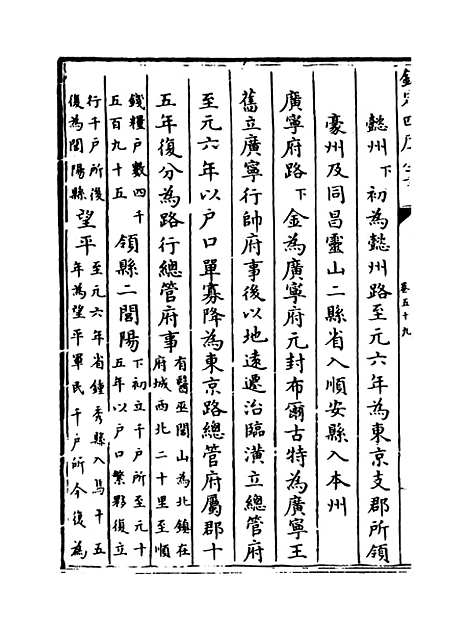 欽定四庫全書
卷五十九
懿州下初為懿州路至元六年為東京支郡所領
豪州及同昌靈山二縣省入順安縣入本州
廣寧府路下金為廣寧府元封布爾古特為廣寧王
舊立廣寧行帥府事後以地遠遷治臨潢立總管府
至元六年以户口單寡降為東京路總管府屬郡十
五年復分為路行總管府事有醫巫閭山為北鎮在府城西北二十里至順
錢糧户數四千五百九十五領縣二閭陽下初立千户所至元十五年以户口繁夥復立
行千户所後復為閭陽縣望平至元六年省鍾秀縣入焉十五年為望平軍民千户所今復為